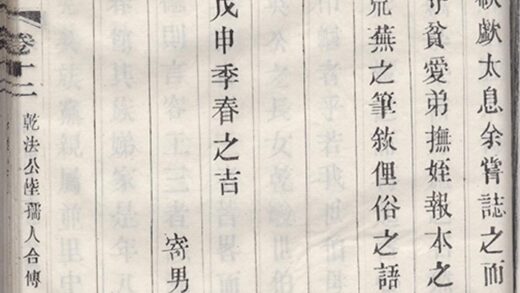 歔欷太息余嘗誌之而
守貧愛弟撫姪報本之
荒蕪之筆敘俚俗之語
戊申季春之吉
寄男
卷十二
乾法公陸孺人合傳